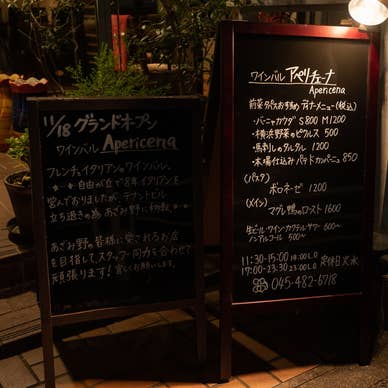 11/18 グランドオープン
ワインバル Apericena
フレンチとイタリアンのワインバル。
自由が丘で8年イタリアンを
営んでおりましたが、テナントビル
立ち退きの為 あざみ野に移転
あざみ野の皆様に愛されるお店
を目指して、スタッフ一同力を合わせて
頑張ります!宜しくお願いします。
ワインバル アペリチェーナ
Apericena
前菜 ディナーメニュー(税込)
・バーニャカウダ S800 M1200
・横浜野菜のピクルス 500
・馬刺しのタルタル 1200
・本場仕込みパテドカンパーニュ 850
(パスタ)
ボロネーゼ 1200
(メイン)
マグレ鴨のロースト 1600
生ビール・ワイン・カクテル・サワー 600〜
ノンアルコール 500〜
11:30-15:00 14:00LO 定休日火水
17:00-23:30 23:00LO
045-482-6718